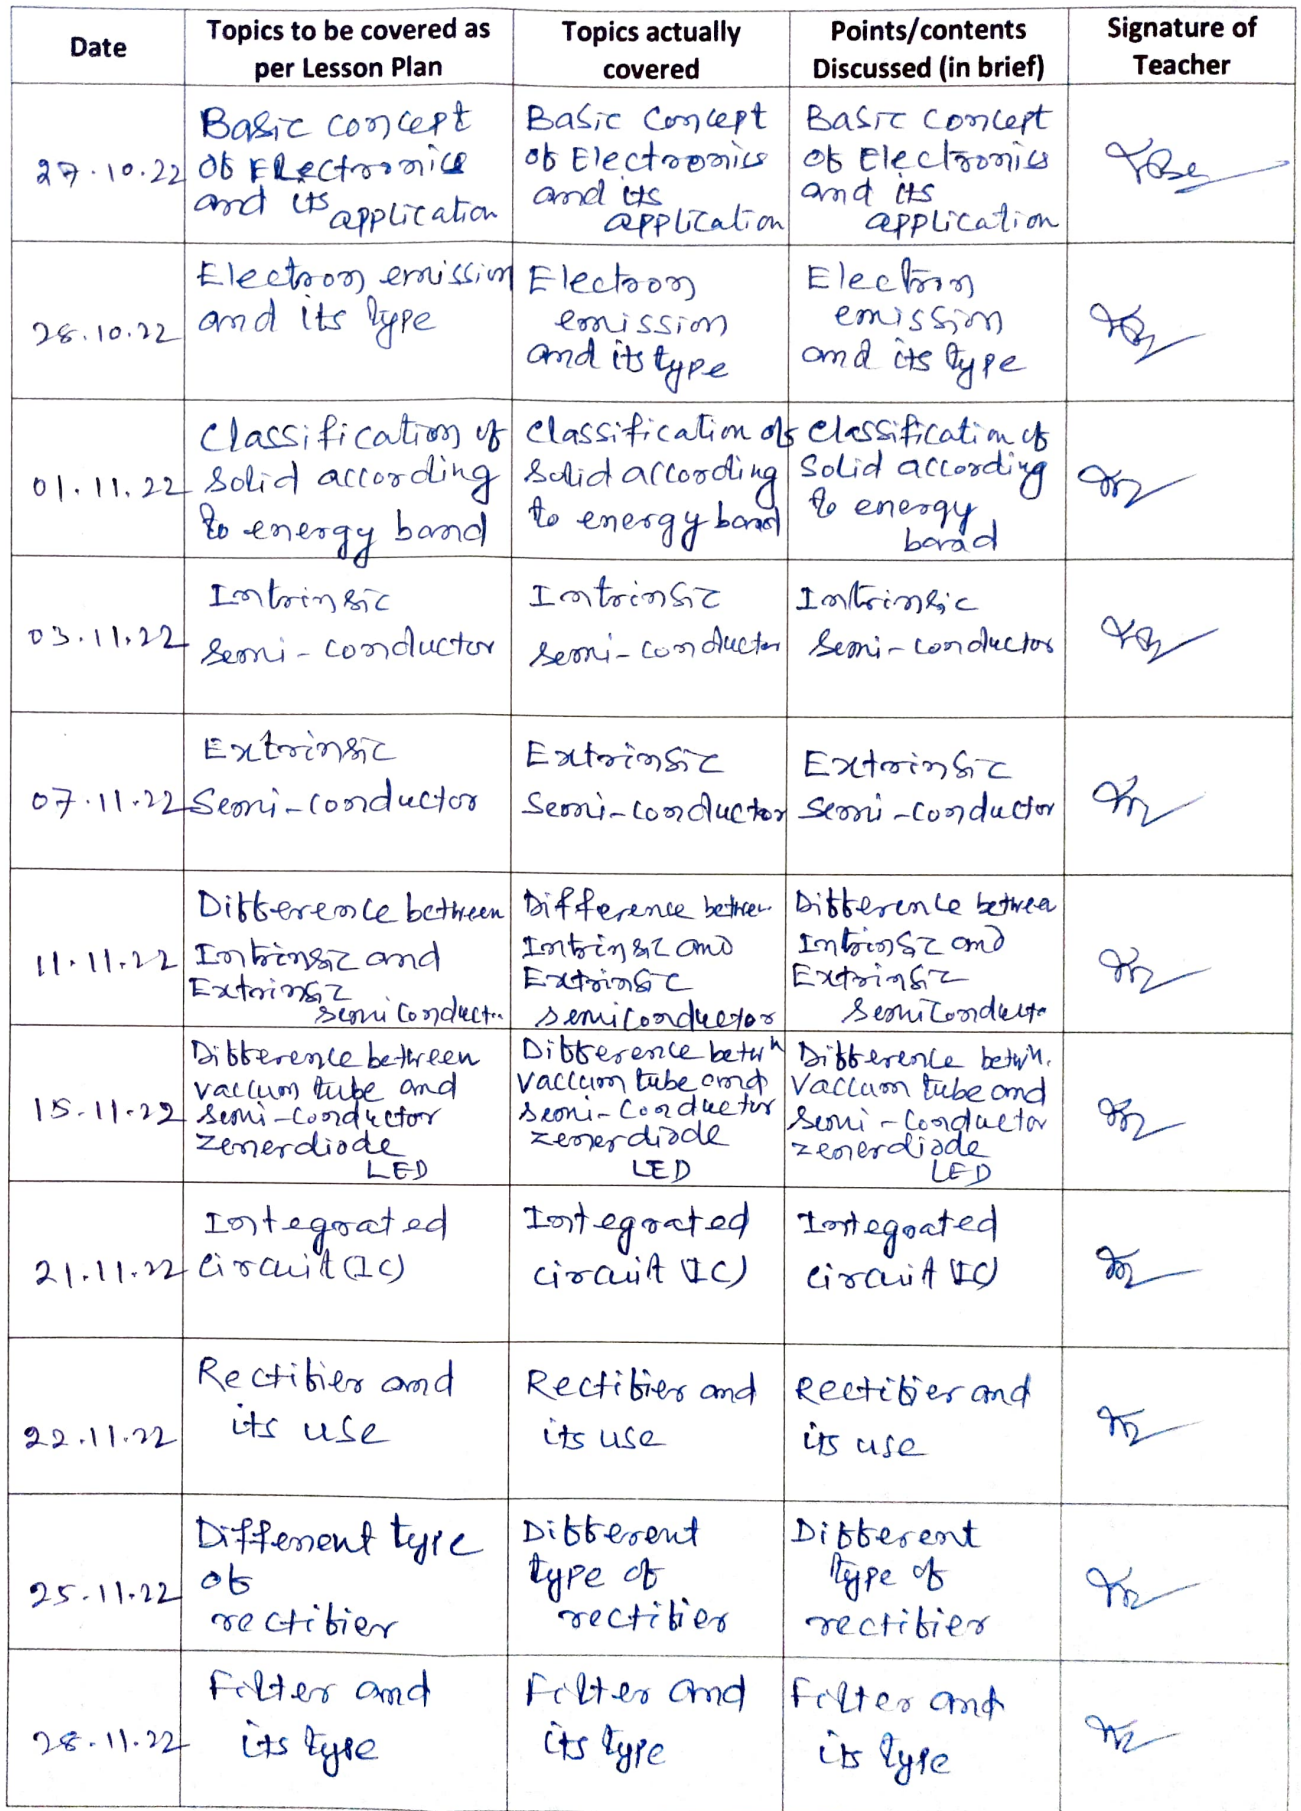 Date
Topics to be covered as
per Lesson Plan
Topics actually
covered
Points/contents
Discussed (in brief)
Signature of
Teacher
27.10.22
Basic concept
of Electronics
and its
application
Basic concept
of Electronics
and its
application
Basic concept
of Electronics
and its
application
28.10.22
Electron emission
and its type
Electron
emission
and its type
Electron
emission
and its type
01.11.22
Classification of
Solid according
to energy band
classification of
Solid according
to energy band
classification of
Solid according
to energy
band
03.11.22
Intrinsic
Semi-conductor
Intrinsic
Semi-conductor
Intrinsic
Semi-conductor
07.11.22
Extrinsic
Semi-conductor
Extrinsic
Semi-conductor
Extrinsic
Semi-conductor
11.11.22
Difference between
Intrinsic and
Extrinsic
semiconduct..
Difference between
Intrinsic and
Extrinsic
semiconductor
Difference between
Intrinsic and
Extrinsic
Semiconductor
15.11.22
Difference between
vaccum tube and
Semi-conductor
zenerdiode
LED
Difference betwn
vaccum tube and
Semi-conductor
zenerdiode
LED
Difference betwn.
Vaccum tube and
Semi-conductor
zenerdiode
LED
21.11.22
Integrated
circuit (IC)
Integrated
circuit (IC)
Integrated
circuit (IC)
22.11.22
Rectifier and
its use
Rectifier and
its use
Rectifier and
its use
25.11.22
Different type
of
rectifier
Different
type of
rectifier
Different
type of
rectifier
28.11.22
Filter and
its type
Filter and
its type
Filter and
its type